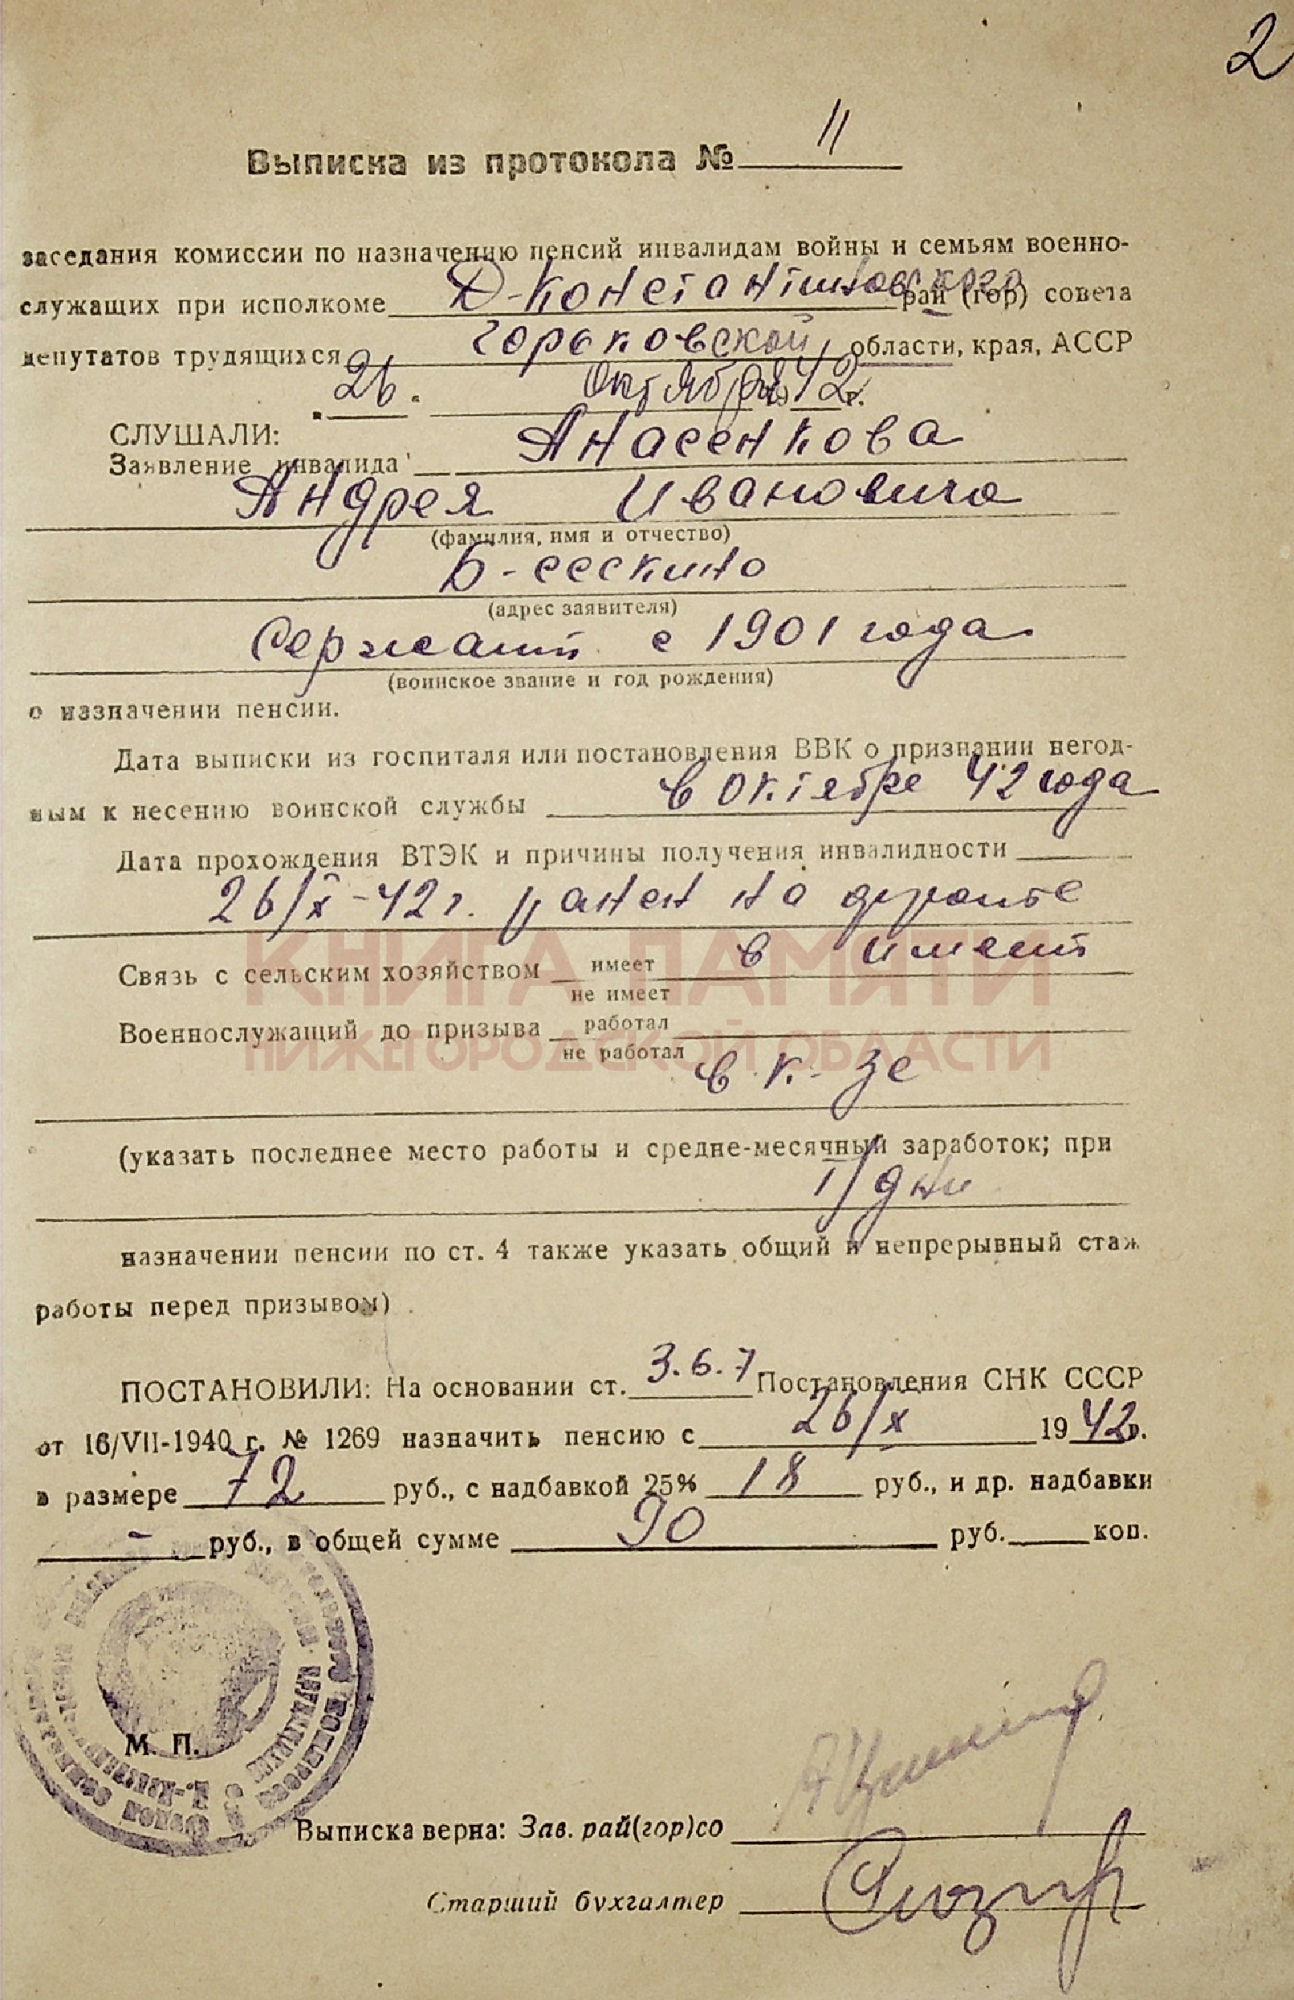 2
Выписка из протокола № 11
заседания комиссии по назначению пенсий инвалидам войны и семьям военно-
служащих при исполкоме Д-Константиновского рай (гор) совета
депутатов трудящихся Горьковской области, края, АССР
26 октября 1942 г.
СЛУШАЛИ:
Заявление инвалида Анасенкова
Андрея Ивановича
(фамилия, имя и отчество)
Б-сескино
(адрес заявителя)
Сержант с 1901 года
(воинское звание и год рождения)
о назначении пенсии.
Дата выписки из госпиталя или постановления ВВК о признании негод-
ным к несению воинской службы в октябре 42 года
Дата прохождения ВТЭК и причины получения инвалидности
26/X-42 г. ранен на фронте
Связь с сельским хозяйством имеет в имеет
не имеет
Военнослужащий до призыва работал
не работал
в к-зе
(указать последнее место работы и средне-месячный заработок; при
назначении пенсии по ст. 4 также указать общий и непрерывный стаж
работы перед призывом)
ПОСТАНОВИЛИ: На основании ст. 3.6.7 Постановления СНК СССР
от 16/VII-1940 г. № 1269 назначить пенсию с 26/X 1942 г.
в размере 72 руб., с надбавкой 25% 18 руб., и др. надбавки
- руб., в общей сумме 90 руб. коп.
М. П.
Выписка верна: Зав. рай(гор)со
Старший бухгалтер
КНИГА ПАМЯТИ
НИЖЕГОРОДСКОЙ ОБЛАСТИ